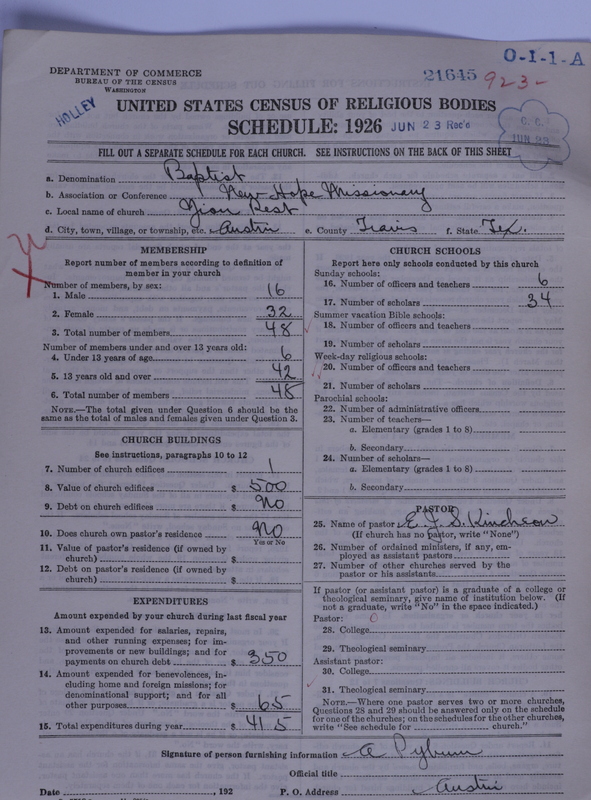 O-1-1-A
DEPARTMENT OF COMMERCE
BUREAU OF THE CENSUS
WASHINGTON
21645 923-
HOLLEY
UNITED STATES CENSUS OF RELIGIOUS BODIES
SCHEDULE: 1926 JUN 23 Rec'd
C. C.
JUN 28
FILL OUT A SEPARATE SCHEDULE FOR EACH CHURCH. SEE INSTRUCTIONS ON THE BACK OF THIS SHEET
a. Denomination Baptist
b. Association or Conference New Hope Missionary
c. Local name of church Zion Rest
d. City, town, village, or township, etc. Austin e. County Travis f. State Tex.
MEMBERSHIP
Report number of members according to definition of
member in your church
Number of members, by sex:
1. Male 16
2. Female 32
3. Total number of members 48
Number of members under and over 13 years old:
4. Under 13 years of age 6
5. 13 years old and over 42
6. Total number of members 48
NOTE.—The total given under Question 6 should be the
same as the total of males and females given under Question 3.
CHURCH BUILDINGS
See instructions, paragraphs 10 to 12
7. Number of church edifices 1
8. Value of church edifices $ 500
9. Debt on church edifices $ No
10. Does church own pastor's residence No
Yes or No
11. Value of pastor's residence (if owned by
church) $
12. Debt on pastor's residence (if owned by
church) $
EXPENDITURES
Amount expended by your church during last fiscal year
13. Amount expended for salaries, repairs,
and other running expenses; for im-
provements or new buildings; and for
payments on church debt $ 350
14. Amount expended for benevolences, in-
cluding home and foreign missions; for
denominational support; and for all
other purposes $ 65
15. Total expenditures during year $ 415
CHURCH SCHOOLS
Report here only schools conducted by this church
Sunday schools:
16. Number of officers and teachers 6
17. Number of scholars 34
Summer vacation Bible schools:
18. Number of officers and teachers
19. Number of scholars
Week-day religious schools:
20. Number of officers and teachers
21. Number of scholars
Parochial schools:
22. Number of administrative officers
23. Number of teachers—
a. Elementary (grades 1 to 8)
b. Secondary
24. Number of scholars—
a. Elementary (grades 1 to 8)
b. Secondary
PASTOR
25. Name of pastor E. J. S. Kincheon
(If church has no pastor, write "None")
26. Number of ordained ministers, if any, em-
ployed as assistant pastors
27. Number of other churches served by the
pastor or his assistants
If pastor (or assistant pastor) is a graduate of a college or
theological seminary, give name of institution below. (If
not a graduate, write "No" in the space indicated.)
Pastor: 0
28. College
29. Theological seminary
Assistant pastor:
30. College
31. Theological seminary
NOTE.—Where one pastor serves two or more churches,
Questions 28 and 29 should be answered only on the schedule
for one of the churches; on the schedules for the other churches,
write "See schedule for church."
Signature of person furnishing information A Pyburn
Official title
Date , 192 P. O. Address Austin